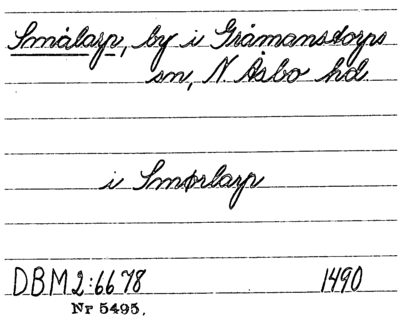 Smålarp, by i Gråmanstorps
sn, N. Åsbo hd.
i Smørlarp
DBM 2:6678 1490
Nr 5495.